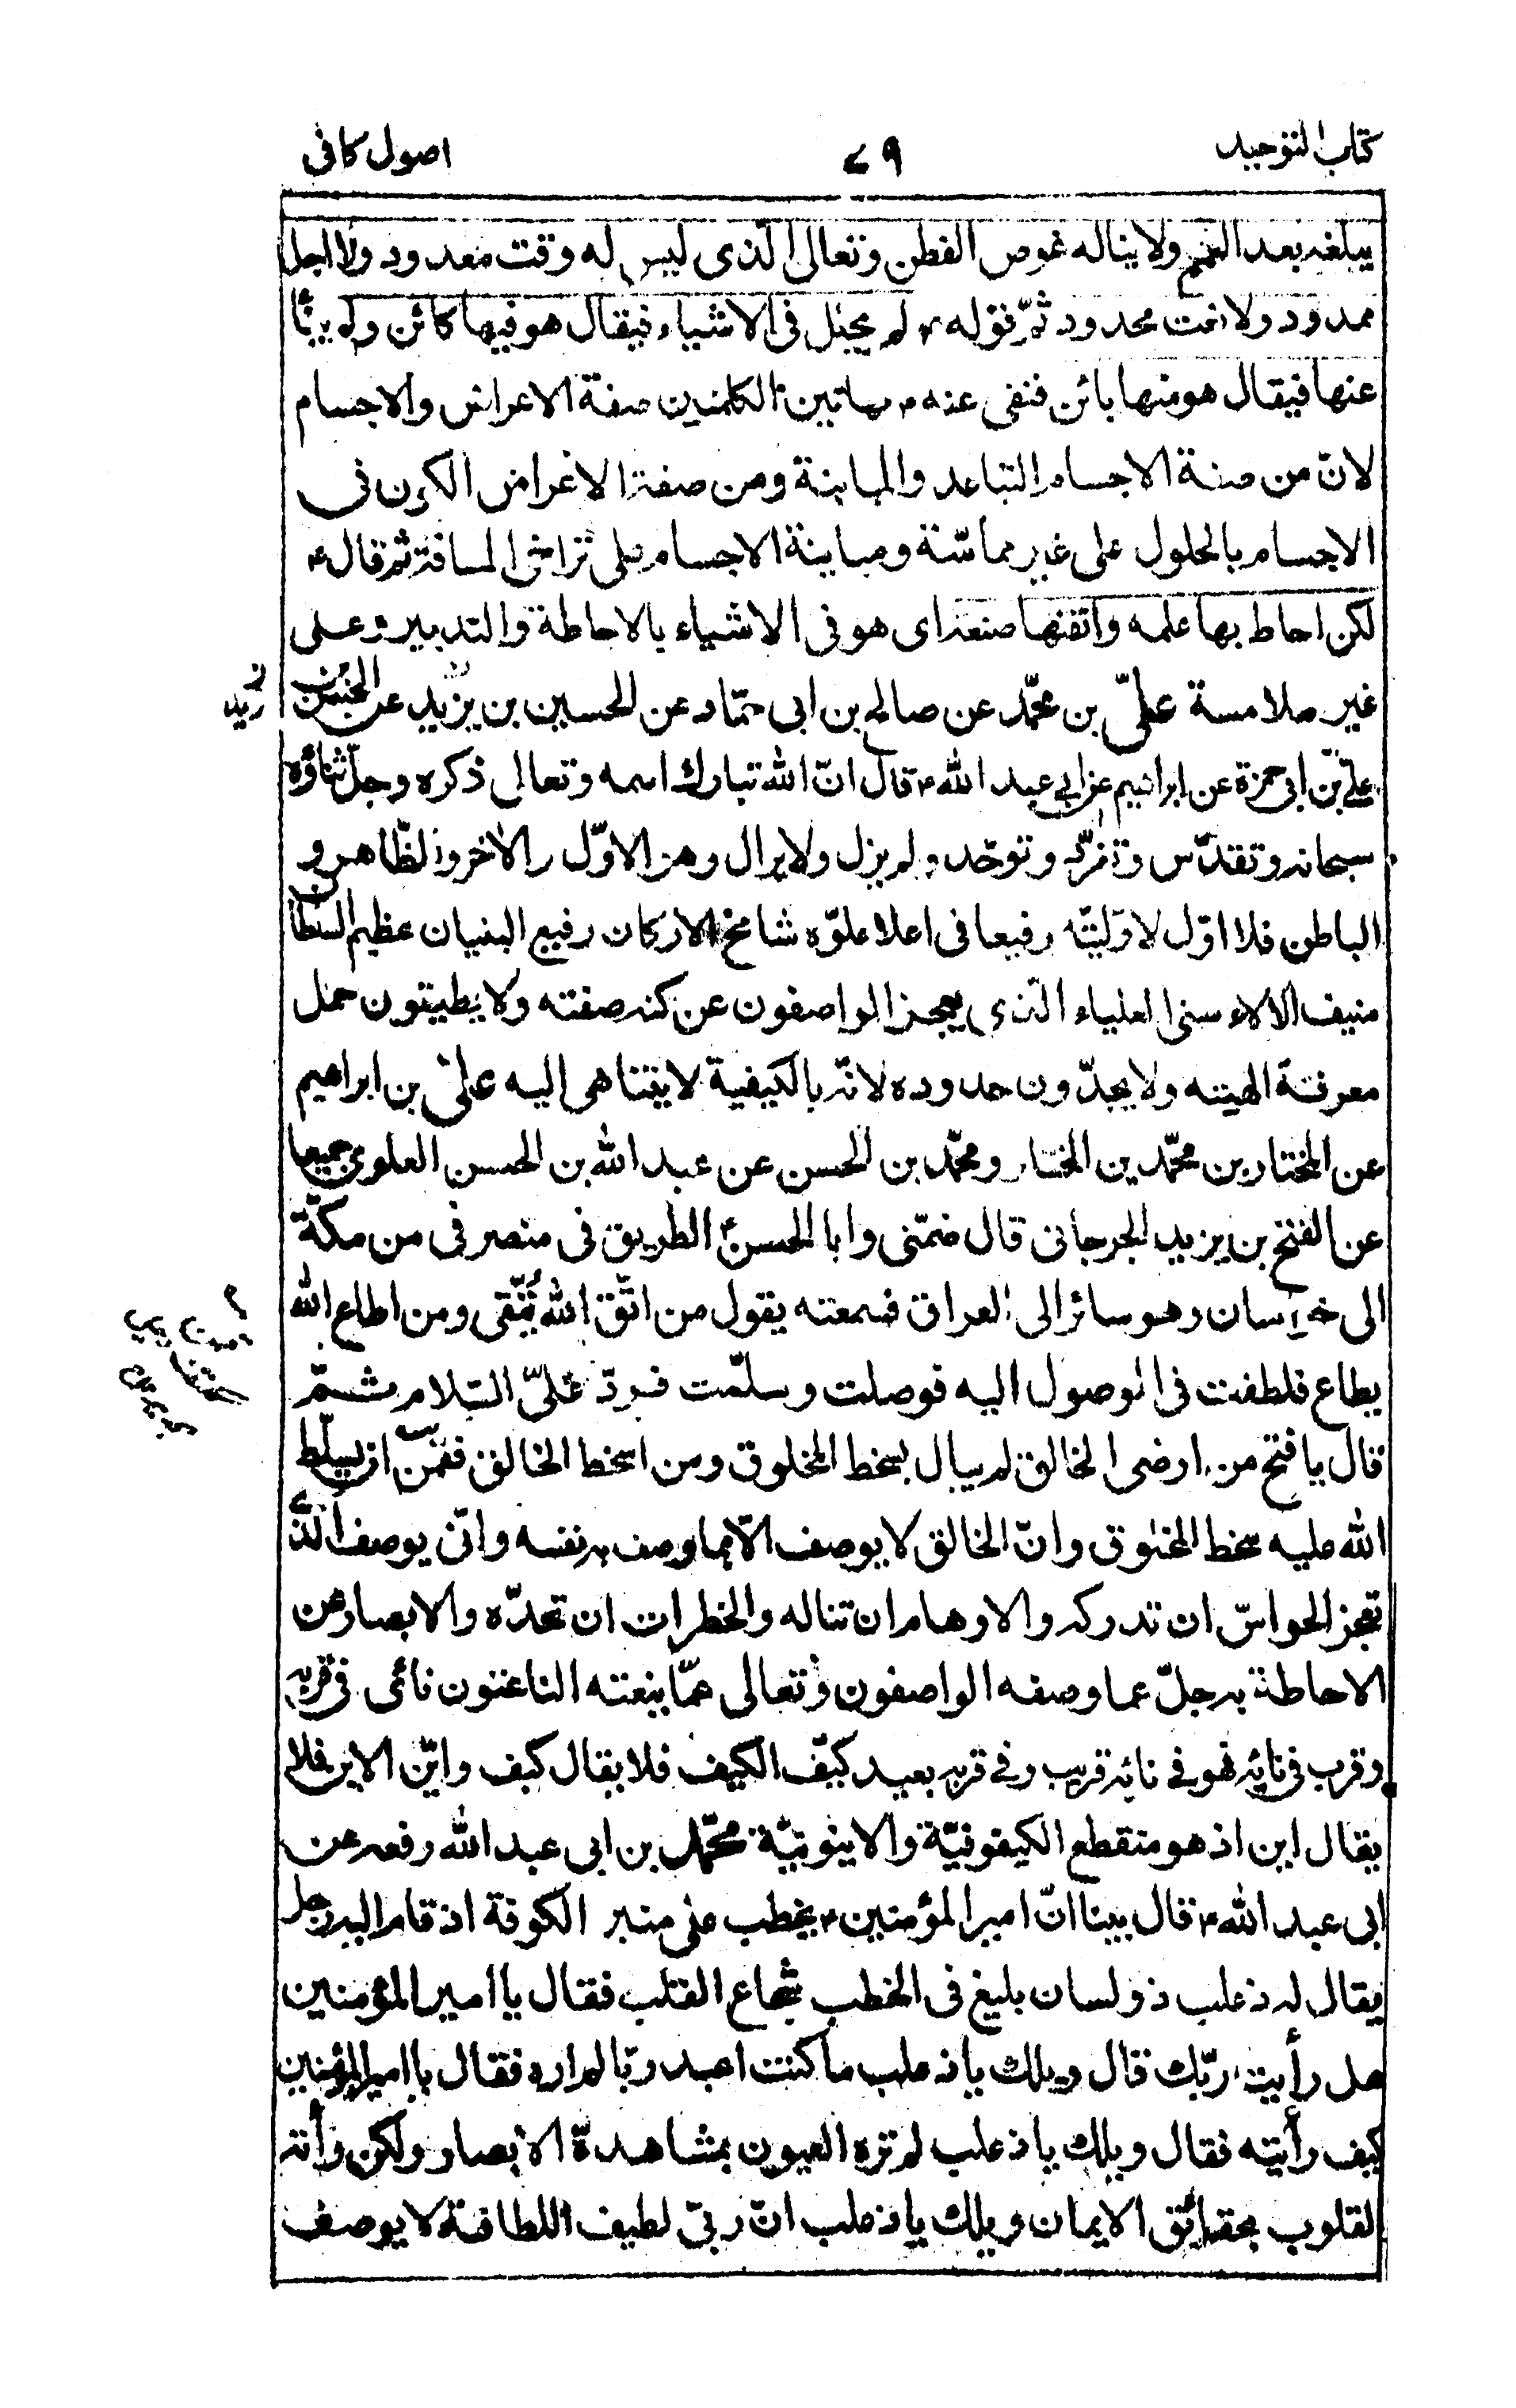 كتاب التوحيد
٧٩
اصول كافى
يبلغه بعد الهمم ولا يناله غوص الفطن وتعالى الّذى ليس له وقت معدود ولا اجل
ممدود ولا نعت محدود ثمّ قوله ع لم يحلل فى الاشياء فيقال هو فيها كائن ولم ينأ
عنها فيقال هو منها بائن فنفى عنه ع بهاتين الكلمتين صفة الاعراض والاجسام
لانّ من صفة الاجسام التباعد والمباينة ومن صفة الاعراض الكون فى
الاجسام بالحلول على غير مماسّة ومباينة الاجسام على تراخى المسافة ثم قال ع
لكن احاط بها علمه واتقنها صنعه اى هو فى الاشياء بالاحاطة والتدبير وعلى
غير ملامسة علىّ بن محمّد عن صالح بن ابى حمّاد عن الحسين بن يزيد عن الحسن بن
زيد ن
علىّ بن ابى حمزة عن ابراهيم عن ابى عبد الله ع قال انّ الله تبارك اسمه وتعالى ذكره وجلّ ثناؤه
سبحانه وتقدّس وتفرّد وتوحّد ولم يزل ولا يزال وهو الاوّل والاخر والظّاهر و
الباطن فلا اوّل لاوّليّته رفيعا فى اعلا علوّه شامخ الاركان رفيع البنيان عظيم السلطان
منيف الالاء سنى العلياء الّذى يعجز الواصفون عن كنه صفته ولا يطيقون حمل
معرفة الهيته ولا يحدّون حدوده لانّه بالكيفية لا يتناهى اليه علىّ بن ابراهيم
عن المختار بن محمّد بن المختار ومحمّد بن الحسن عن عبد الله بن الحسن العلوى جميعا
عن الفتح بن يزيد الجرجانى قال ضمّنى وابا الحسن ع الطريق فى منصرفى من مكّة
الى خراسان وهو سائر الى العراق فسمعته يقول من اتّق الله يُتّقى ومن اطاع الله
يطاع فلطفت فى الوصول اليه فوصلت وسلّمت فردّ علىّ السّلام ثمّ
قال يا فتح من ارضى الخالق لم يبال بسخط المخلوق ومن اسخط الخالق فقمن ان يسلّط
الله عليه سخط المخلوق وانّ الخالق لا يوصف الّا بما وصف به نفسه وانّى يوصف الّذى
تعجز الحواسّ ان تدركه والاوهام ان تناله والخطرات ان تحدّه والابصار عن
الاحاطة به جلّ عما وصفه الواصفون وتعالى عمّا ينعته الناعتون نائى فى قربه
وقرب فى نائيه فهو فى نائه قريب وفى قربه بعيد كيّف الكيف فلا يقال كيف وايّن الاين فلا
يقال اين اذ هو منقطع الكيفوفيّة والاينونيّة محمّد بن ابى عبد الله رفعه عن
ابى عبد الله ع قال بينا انّ امير المؤمنين ع يخطب على منبر الكوفة اذ قام اليه رجل
يقال له ذعلب ذو لسان بليغ فى الخطب شجاع القلب فقال يا امير المؤمنين
هل رأيت ربّك قال ويلك يا ذعلب ما كنت اعبد ربّا لم اره فقال يا امير المؤمنين
كيف رأيته فقال ويلك يا ذعلب لم تره العيون بمشاهدة الابصار ولكن رأته
القلوب بحقائق الايمان ويلك يا ذعلب انّ ربّى لطيف اللطافة لا يوصف